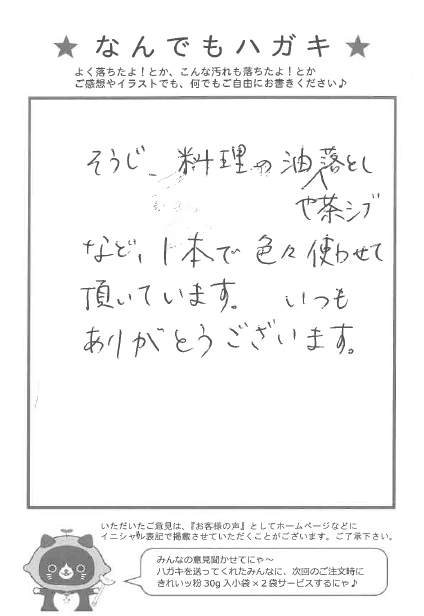 ★ なんでもハガキ ★
よく落ちたよ！とか、こんな汚れも落ちたよ！とか
ご感想やイラストでも、何でもご自由にお書きください♪
そうじ、料理の油落とし
や茶シブ
など、1本で色々使わせて
頂いています。 いつも
ありがとうございます。
いただいたご意見は、『お客様の声』としてホームページなどに
イニシャル表記で掲載させていただくことがございます。ご了承下さい。
みんなの意見聞かせてにゃ～
ハガキを送ってくれたみんなに、次回のご注文時に
きれいッ粉30g入小袋×2袋サービスするにゃ♪